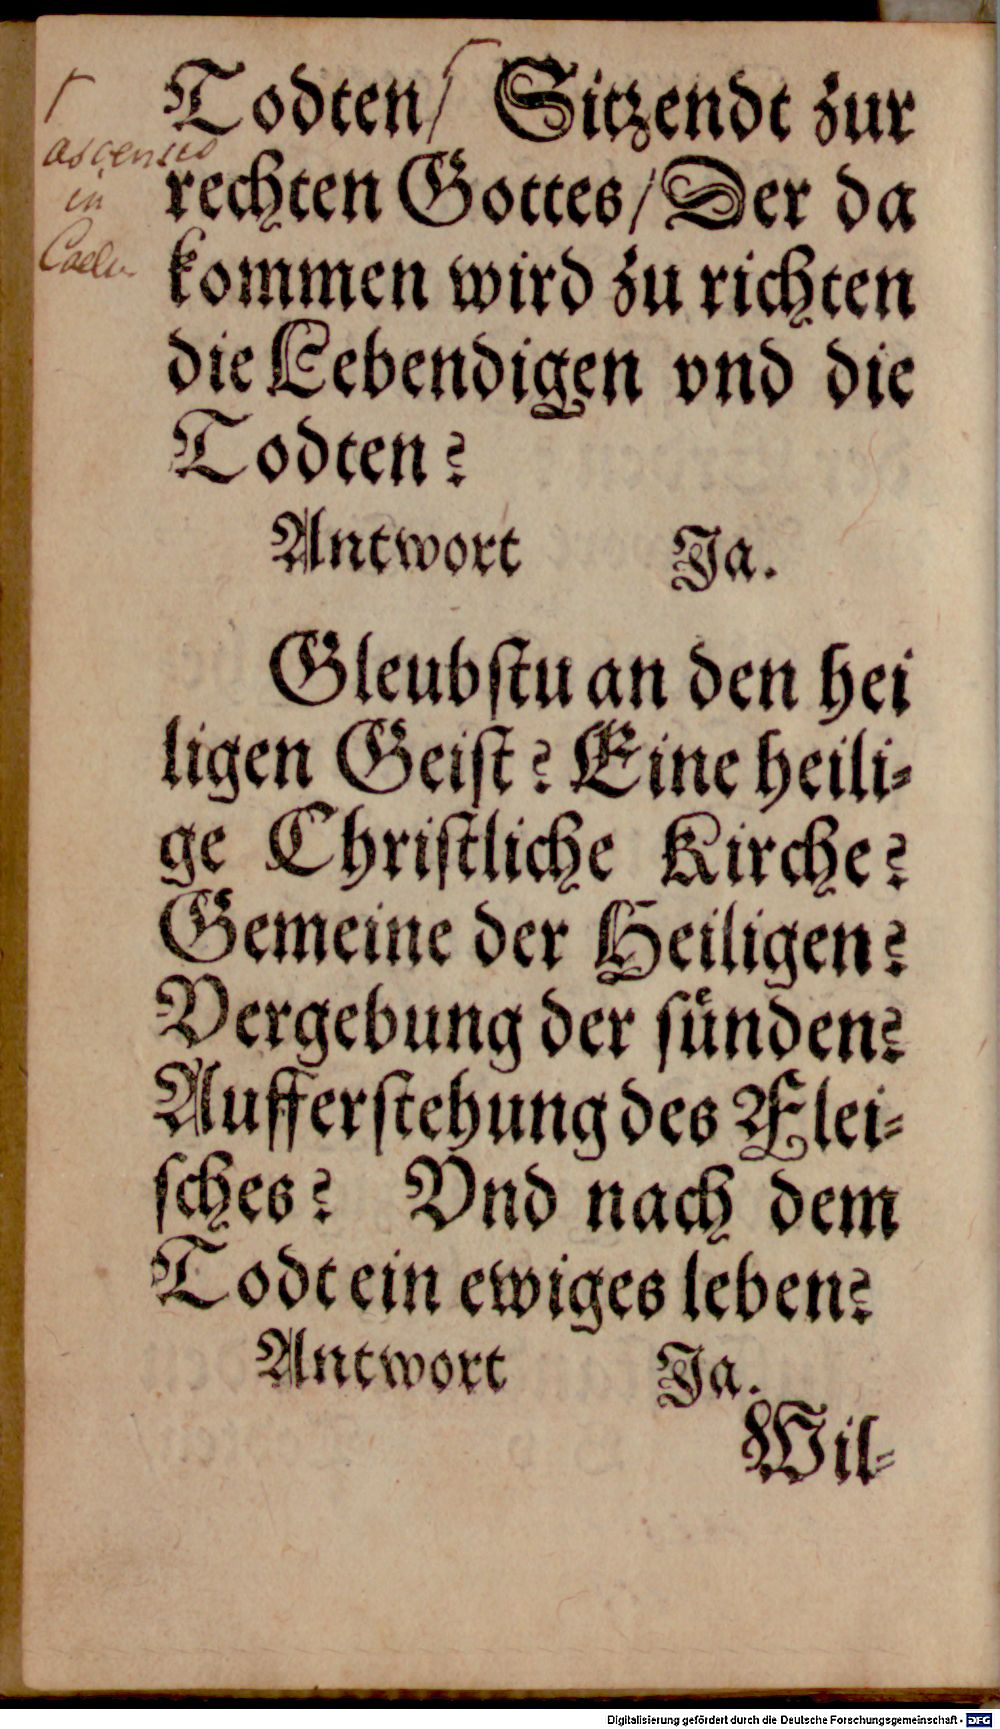 Todten/ Sitzendt zur
ascensio
in
Coelu
rechten Gottes/ Der da
kommen wird zu richten
die Lebendigen vnd die
Todten?
Antwort Ja.
Gleubstu an den hei
ligen Geist? Eine heili-
ge Christliche Kirche?
Gemeine der Heiligen?
Vergebung der sünden?
Aufferstehung des Flei-
sches? Vnd nach dem
Todt ein ewiges leben?
Antwort Ja.
Wil-
Digitalisierung gefördert durch die Deutsche Forschungsgemeinschaft - DFG